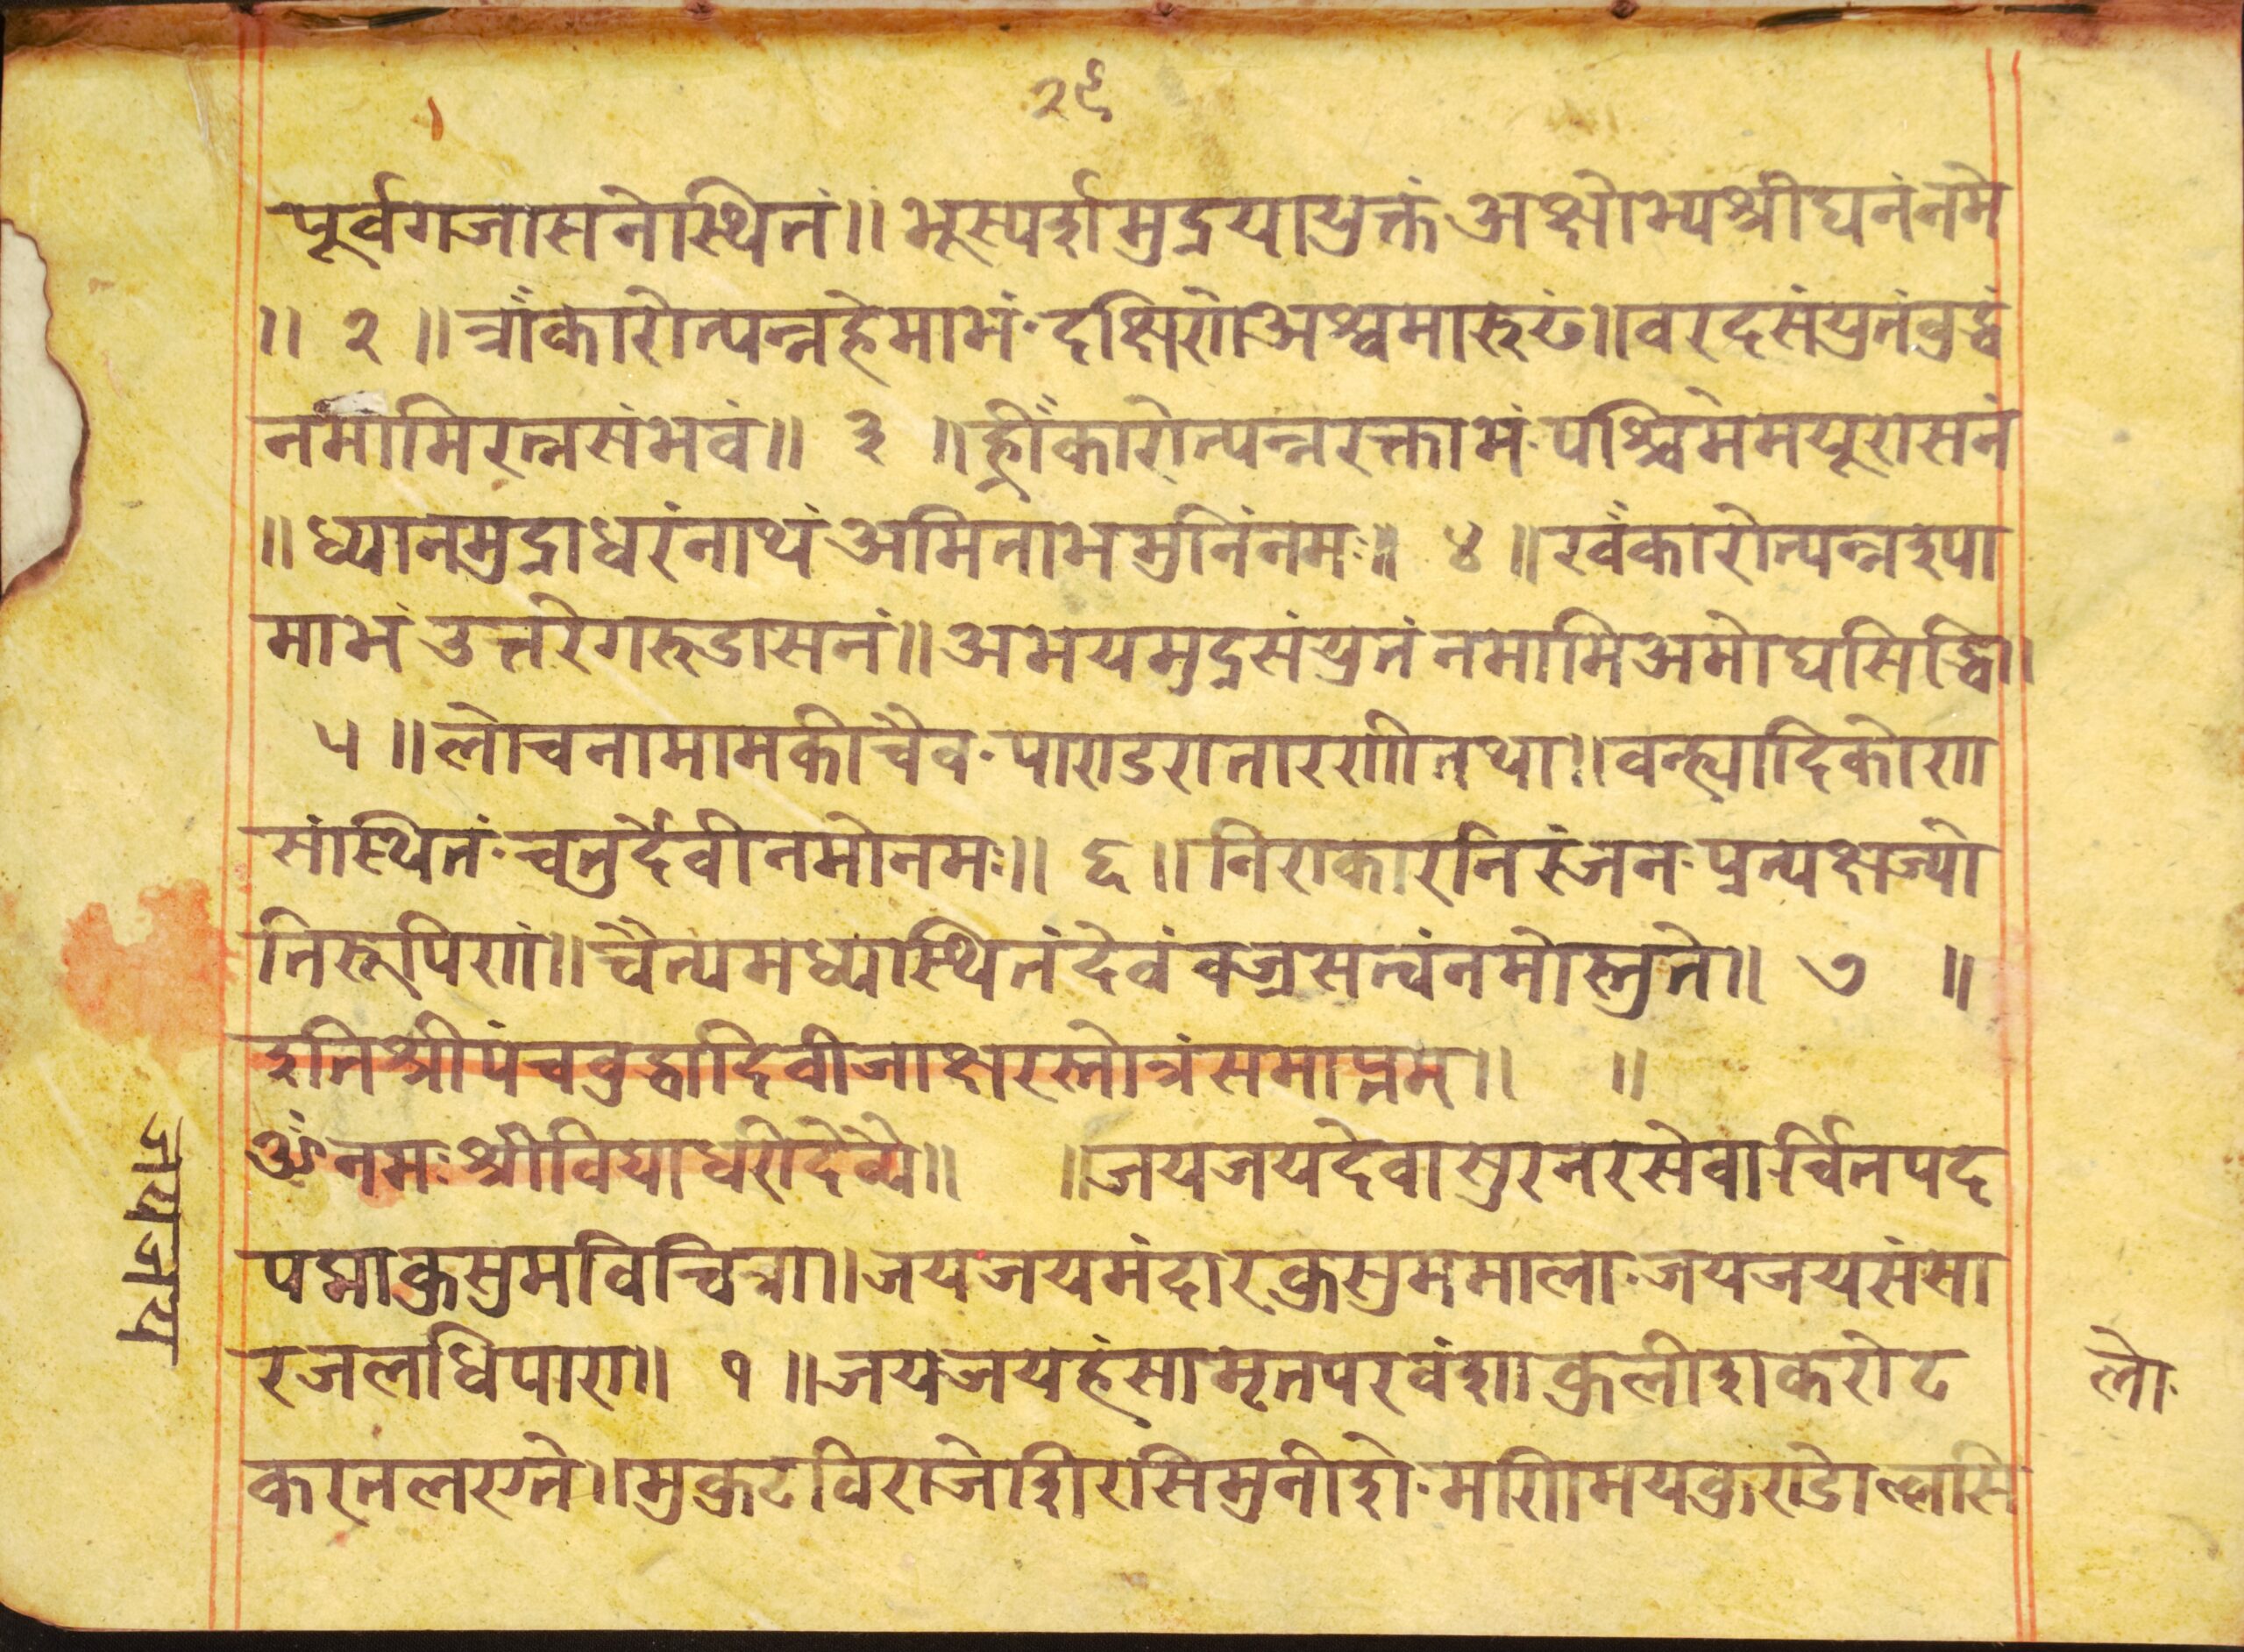 २९
पूर्वगजासनेस्थितं॥ भूस्पर्शमुद्रयायुक्तं अक्षोभ्यश्रीघनंनमे
॥ २ ॥ त्राँकारोत्पन्नहेमाभं· दक्षिणेअश्वमारुढं॥ वरदसंयुतंवुद्धं
नमामिरत्नसंभवं॥ ३ ॥ ह्रीँकारोत्पन्नरक्ताभं· पश्चिमेमयूरासनं
॥ ध्यानमुद्राधरंनाथं अमिताभमुनिंनमः॥ ४ ॥ खँकारोत्पन्नश्या
माभं उत्तरेगरुडासनं॥ अभयमुद्रसंयुतं नमामिअमोघसिद्धि॥
५ ॥ लोचनामामकीचैव· पाण्डरातारणीतथा॥ वन्ह्यादिकोण
संस्थितं· चतुर्देवीनमोनमः॥ ६ ॥ निराकारनिरंजन· प्रत्यक्षज्यो
तिरूपिणं॥ चैत्यमध्यास्थितंदेवं वज्रसत्वंनमोस्तुते॥ ७ ॥
इतिश्रीपंचवुद्धादिवीजाक्षरस्तोत्रंसमाप्तम्॥ ॥
ॐनमः श्रीविद्याधरीदेव्यै॥ ॥ जयजयदेवासुरनरसेवार्चितपद
पद्माकुसुमविचित्रा॥ जयजयमंदारकुसुममाला· जयजयसंसा
रजलधिपारा॥ १ ॥ जयजयहंसामृतपरवंशा कुलीशकरोट
करतलरग्ने॥ मुकुटविराजेशिरसिमुनीशे· मणिमयकुण्डोल्लसि
जयजय
लो·